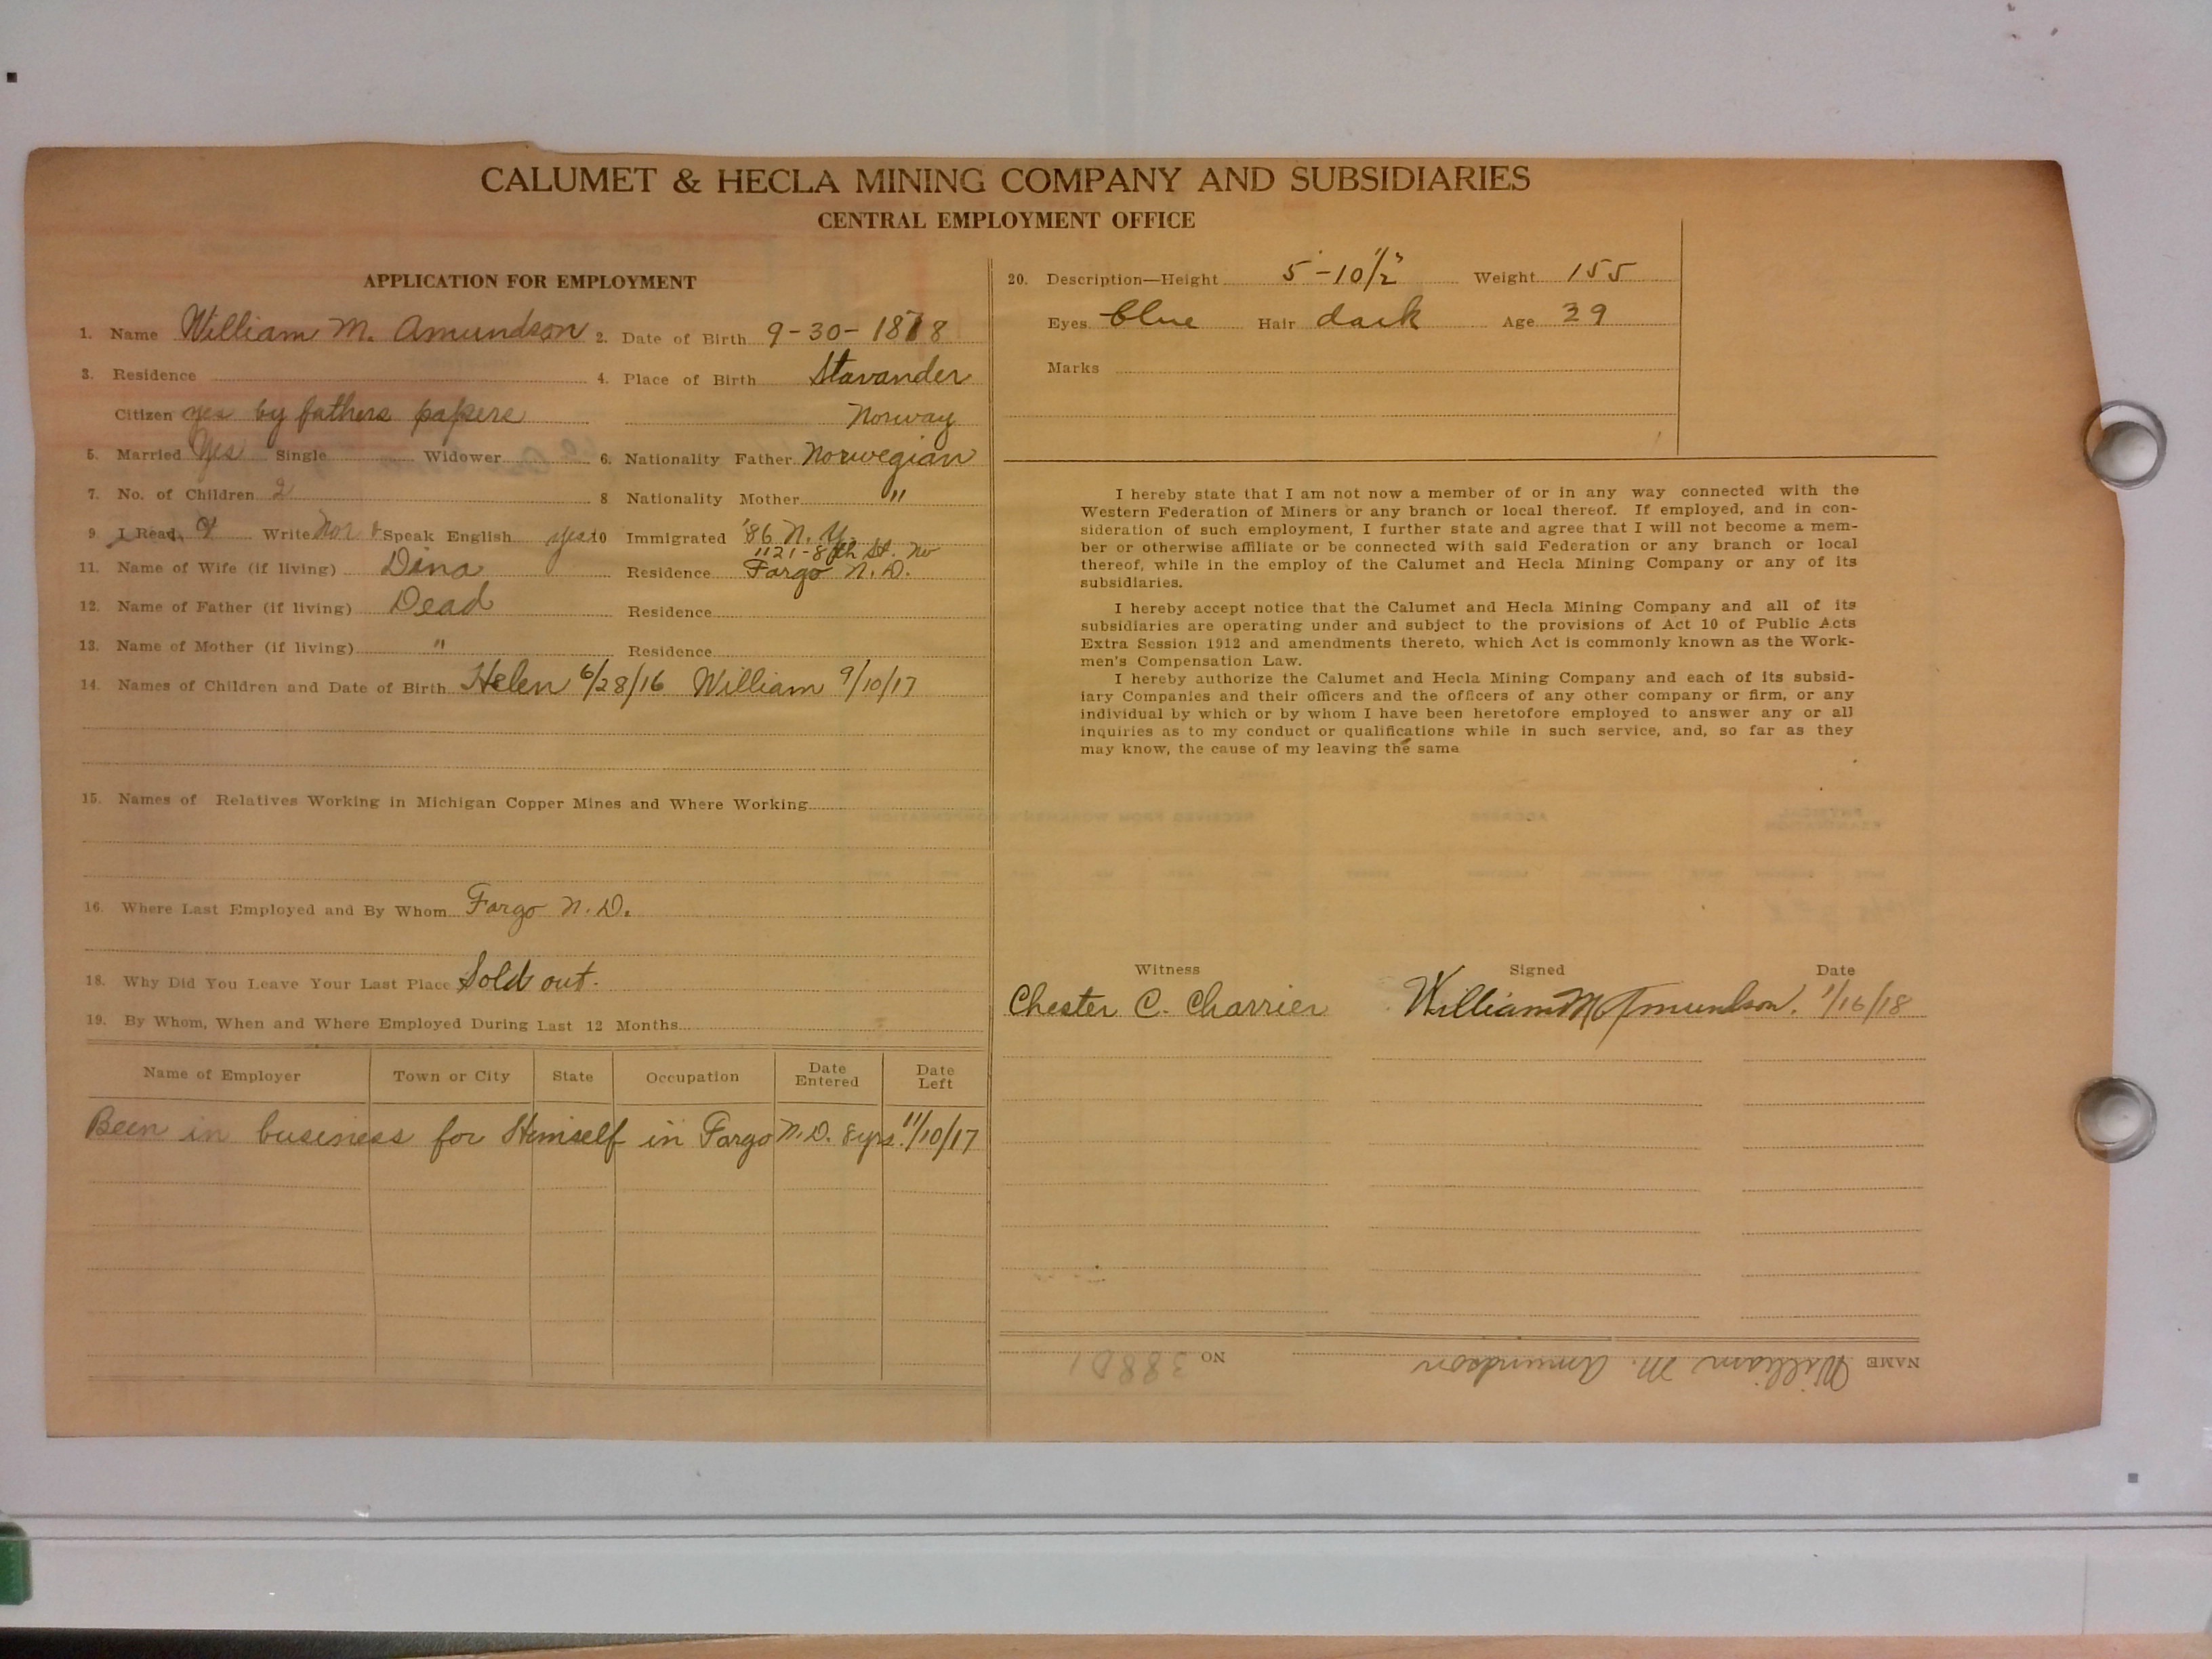 CALUMET & HECLA MINING COMPANY AND SUBSIDIARIES
CENTRAL EMPLOYMENT OFFICE
APPLICATION FOR EMPLOYMENT
1. Name William M. Amundson 2. Date of Birth 9-30-1878
3. Residence 4. Place of Birth Stavander
Citizen yes by fathers papers Norway
5. Married Yes Single Widower 6. Nationality Father Norwegian
7. No. of Children 2 8 Nationality Mother "
9 I Read & Write Nor & Speak English yes 10 Immigrated '86 N.Y.
1121-8th St. No
11. Name of Wife (if living) Dina Residence Fargo N.D.
12. Name of Father (if living) Dead Residence
13. Name of Mother (if living) " Residence
14. Names of Children and Date of Birth Helen 6/28/16 William 9/10/17
15. Names of Relatives Working in Michigan Copper Mines and Where Working
16. Where Last Employed and By Whom Fargo N.D.
18. Why Did You Leave Your Last Place Sold out.
19. By Whom, When and Where Employed During Last 12 Months
Name of Employer Town or City State Occupation Date Entered Date Left
Been in business for Himself in Fargo N.D. 8yrs. 11/10/17
20. Description—Height 5'-10 1/2" Weight 155
Eyes blue Hair dark Age 39
Marks
I hereby state that I am not now a member of or in any way connected with the
Western Federation of Miners or any branch or local thereof. If employed, and in con-
sideration of such employment, I further state and agree that I will not become a mem-
ber or otherwise affiliate or be connected with said Federation or any branch or local
thereof, while in the employ of the Calumet and Hecla Mining Company or any of its
subsidiaries.
I hereby accept notice that the Calumet and Hecla Mining Company and all of its
subsidiaries are operating under and subject to the provisions of Act 10 of Public Acts
Extra Session 1912 and amendments thereto, which Act is commonly known as the Work-
men's Compensation Law.
I hereby authorize the Calumet and Hecla Mining Company and each of its subsid-
iary Companies and their officers and the officers of any other company or firm, or any
individual by which or by whom I have been heretofore employed to answer any or all
inquiries as to my conduct or qualifications while in such service, and, so far as they
may know, the cause of my leaving the same
Witness Signed Date
Chester C. Charrier William M Amundson. 1/16/18
NAME William M. Amundson NO